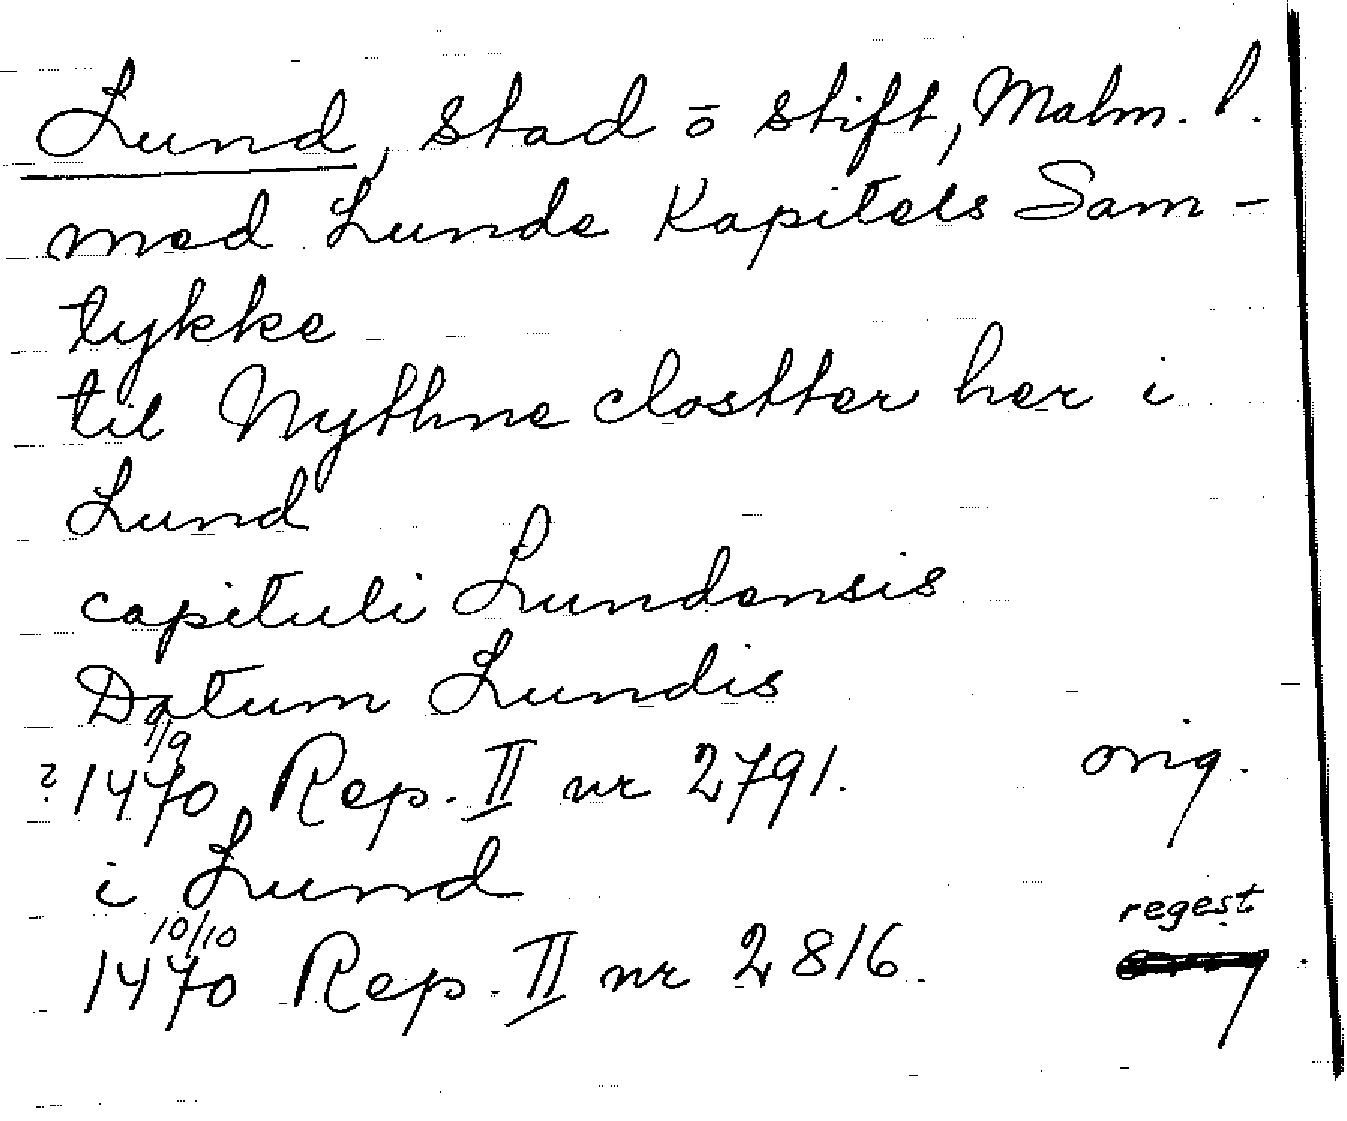 Lund, stad o stift, Malm. l.
med Lunde Kapitels Sam-
tykke
til Nythne clostter her i
Lund
capituli Lundensis
Datum Lundis
1/9
? 1470 Rep. II nr 2791. orig.
i Lund
10/10 regest
1470 Rep. II nr 2816.